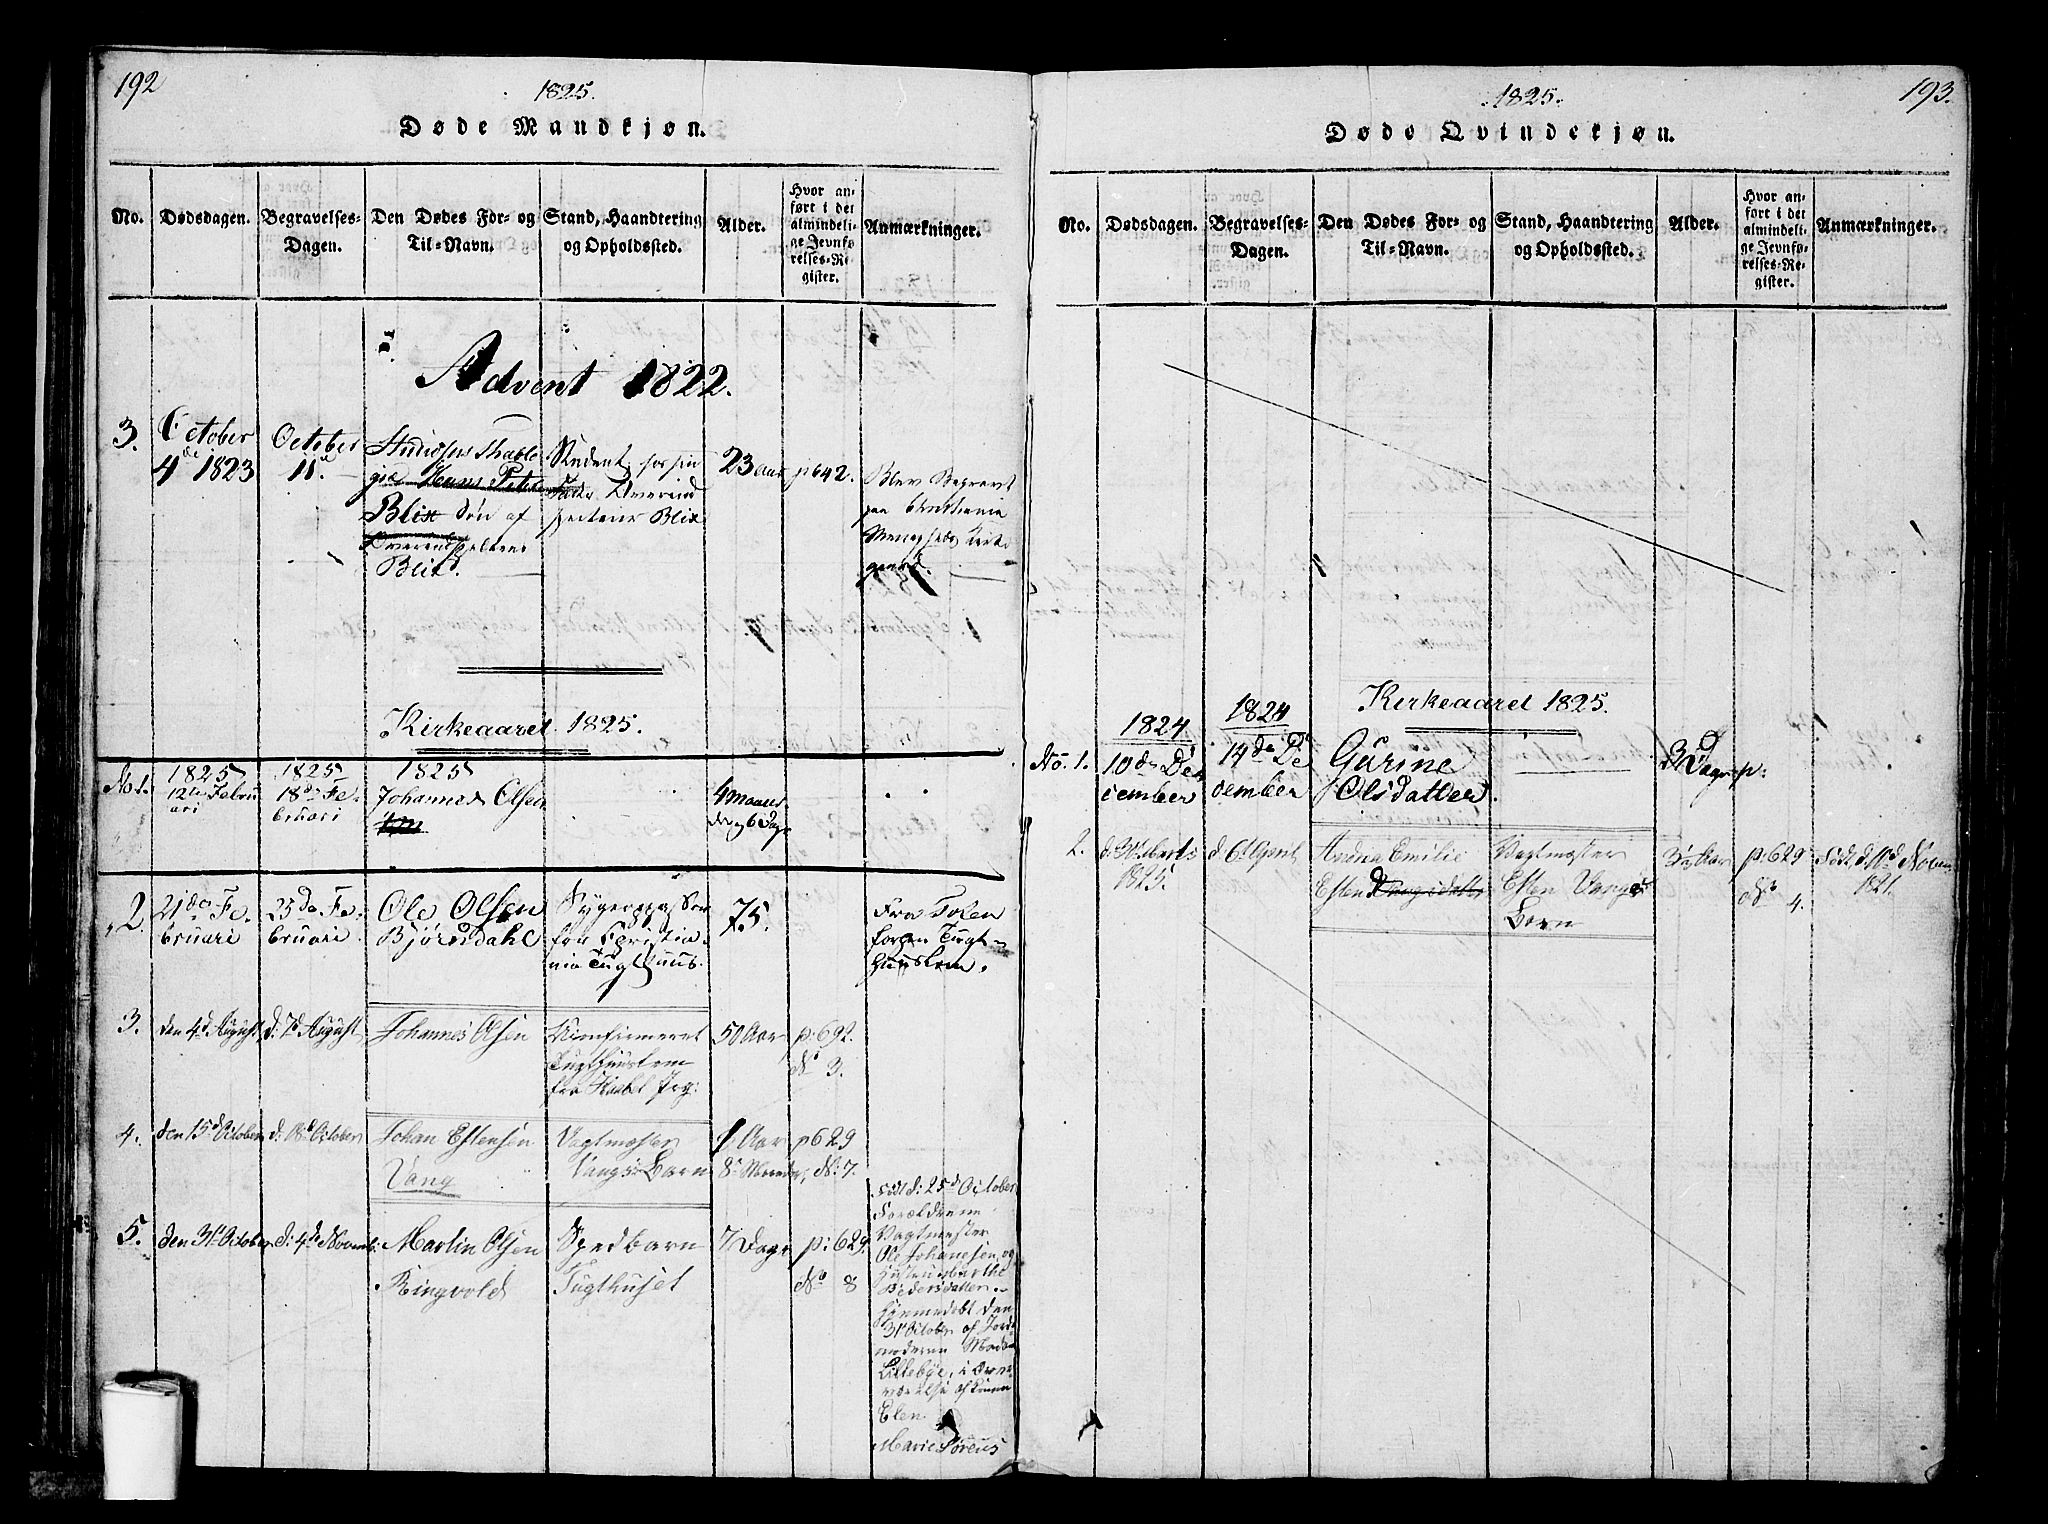 192
1825.
Døde Mandkjøn.
No.
Dødsdagen.
Begravelses-
Dagen.
Den Dødes For- og
Til-Navn.
Stand, Haandtering
og Opholdssted.
Alder.
Hvor an-
ført i det
almindeli-
ge Jevnfø-
relses-Re-
gister.
Anmærkninger.
Advent 1822.
3.
October
4de 1823
October
11te
Hans Peter
Blix Søn af
Blix.
Student, hos sin
Fader Overind
specteur Blix
23 aar
p 642.
Blev Begravet
paa Christiania
Menigheds Kirke
gaard.
Kirkeaaret 1825.
No 1.
1825
12te Febru
ari
1825
18de Fe
bruari
1825
Johannes Olsen
4 maane
der og 6 Dage
2.
21de Fe
bruari
25de Fe
bruari.
Ole Olsen
Bjørnsdahl
75.
Fra
3.
den 4d August
d: 7d August
Johannes Olsen
50 Aar
p: 692.
No 3.
4.
den 15d October
d: 18d October
Johan Estensen
Vang
Vagtmester
Vangs Barn
1 Aar
8 Maaneder,
p 629
No: 7.
5.
den 31t October
d: 4de Novemb:
Martin Olsen
Ringvold
Spedbarn
Tugthuset
7 Dage
p: 629.
No 8
Født d: 25d October
Forældrene
Vagtmester
Ole Johannesen, og
Hustru Marthe
Pedersdatter.
Hjemmedøbt den
31t October af Jord-
moderen Mad:
Lillebye, i Over-
værelse af Konen
Elen
Marie Sørens
193.
1825.
Døde Qvindekjøn.
No.
Dødsdagen.
Begravelses-
Dagen.
Den Dødes For- og
Til-Navn.
Stand, Haandtering
og Opholdssted.
Alder.
Hvor an-
ført i det
almindeli-
ge Jevnfø-
relses-Re-
gister.
Anmærkninger.
Kirkeaaret 1825.
No. 1.
1824
10de De
cember
1824
14de De
cember
Gurine
Olsdatter.
3 Dage
p:
2.
d. 31t Marts
1825.
d. 6t April
Andrea Emilie
Esten
Vagtmester
Esten Vangs
Barn
3½ Aar
p: 629
No 4.
Født d. Novem
1821.